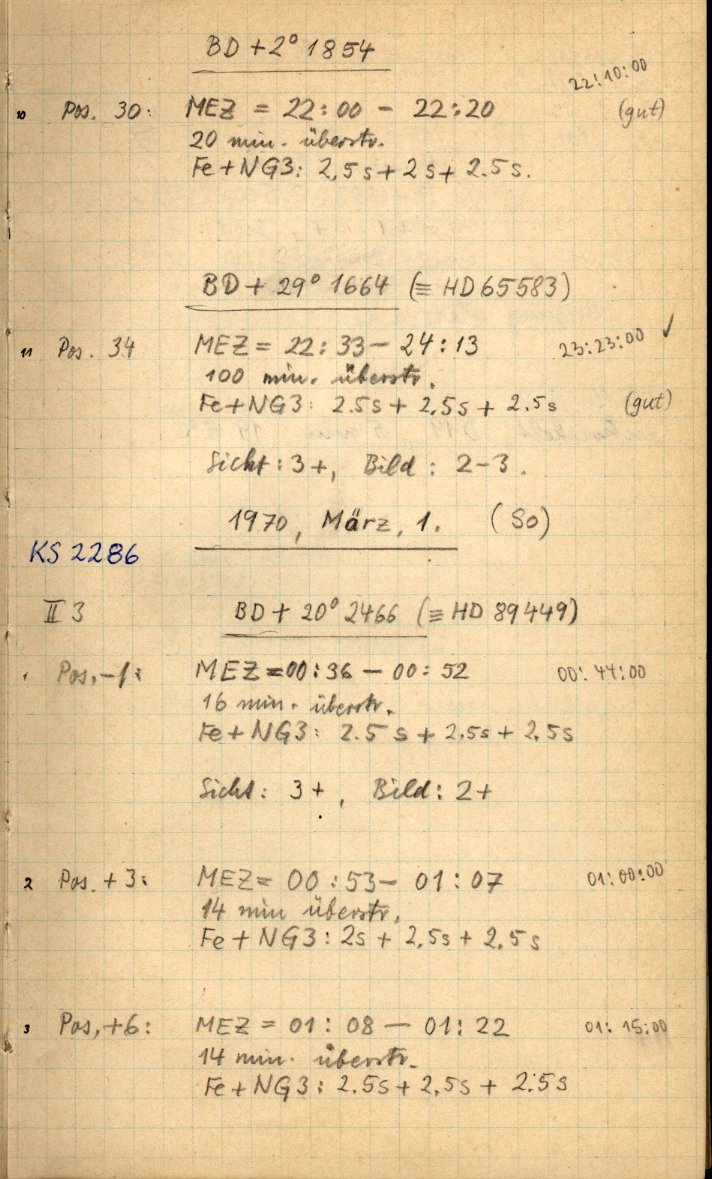 BD +2° 1854
22:10:00
10 Pos. 30: MEZ = 22:00 - 22:20 (gut)
20 min. überstr.
Fe+NG3: 2,5s + 2s + 2.5s.
BD + 29° 1664 (≡ HD 65583)
11 Pos. 34 MEZ = 22:33 - 24:13 23:23:00 ✓
100 min. überstr.
Fe+NG3: 2.5s + 2,5s + 2.5s (gut)
Sicht: 3+, Bild: 2-3.
1970, März, 1. (So)
KS 2286
II 3 BD + 20° 2466 (≡ HD 89449)
1 Pos. -1: MEZ = 00:36 - 00:52 00:44:00
16 min. überstr.
Fe+NG3: 2.5s + 2,5s + 2,5s
Sicht: 3+, Bild: 2+
2 Pos. +3: MEZ = 00:53 - 01:07 01:00:00
14 min überstr.
Fe+NG3: 2s + 2,5s + 2,5s
3 Pos, +6: MEZ = 01:08 - 01:22 01:15:00
14 min. überstr.
Fe+NG3: 2.5s + 2,5s + 2.5s